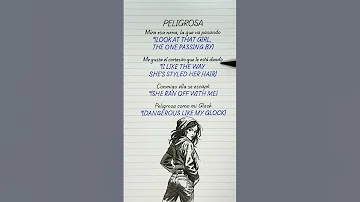 PELIGROSA
Mira esa nena, la que va pasando
*(LOOK AT THAT GIRL,
THE ONE PASSING BY)
Me gusta el cortecito que le está dando
*(I LIKE THE WAY
SHE'S STYLED HER HAIR)
Conmigo ella se escapó
*(SHE RAN OFF WITH ME)
Peligrosa como mi Glock
*(DANGEROUS LIKE MY GLOCK)